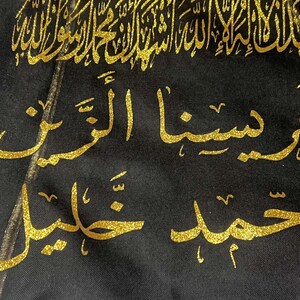 أشهد أن لا إله إلا الله أشهد أن محمد رسول الله
ريسنا الزين
حمد خليل